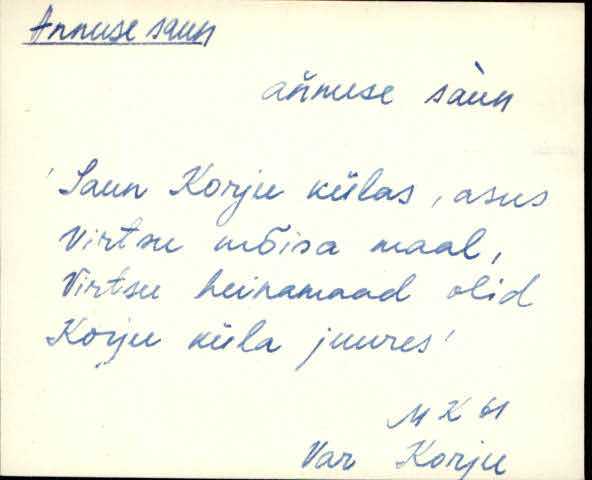 Annuse saun
ańnuse sàun
'Saun Korju külas, asus
Virtsu mõisa maal,
Virtsu heinamaad olid
Korju küla juures'
M K 61
Var Korju